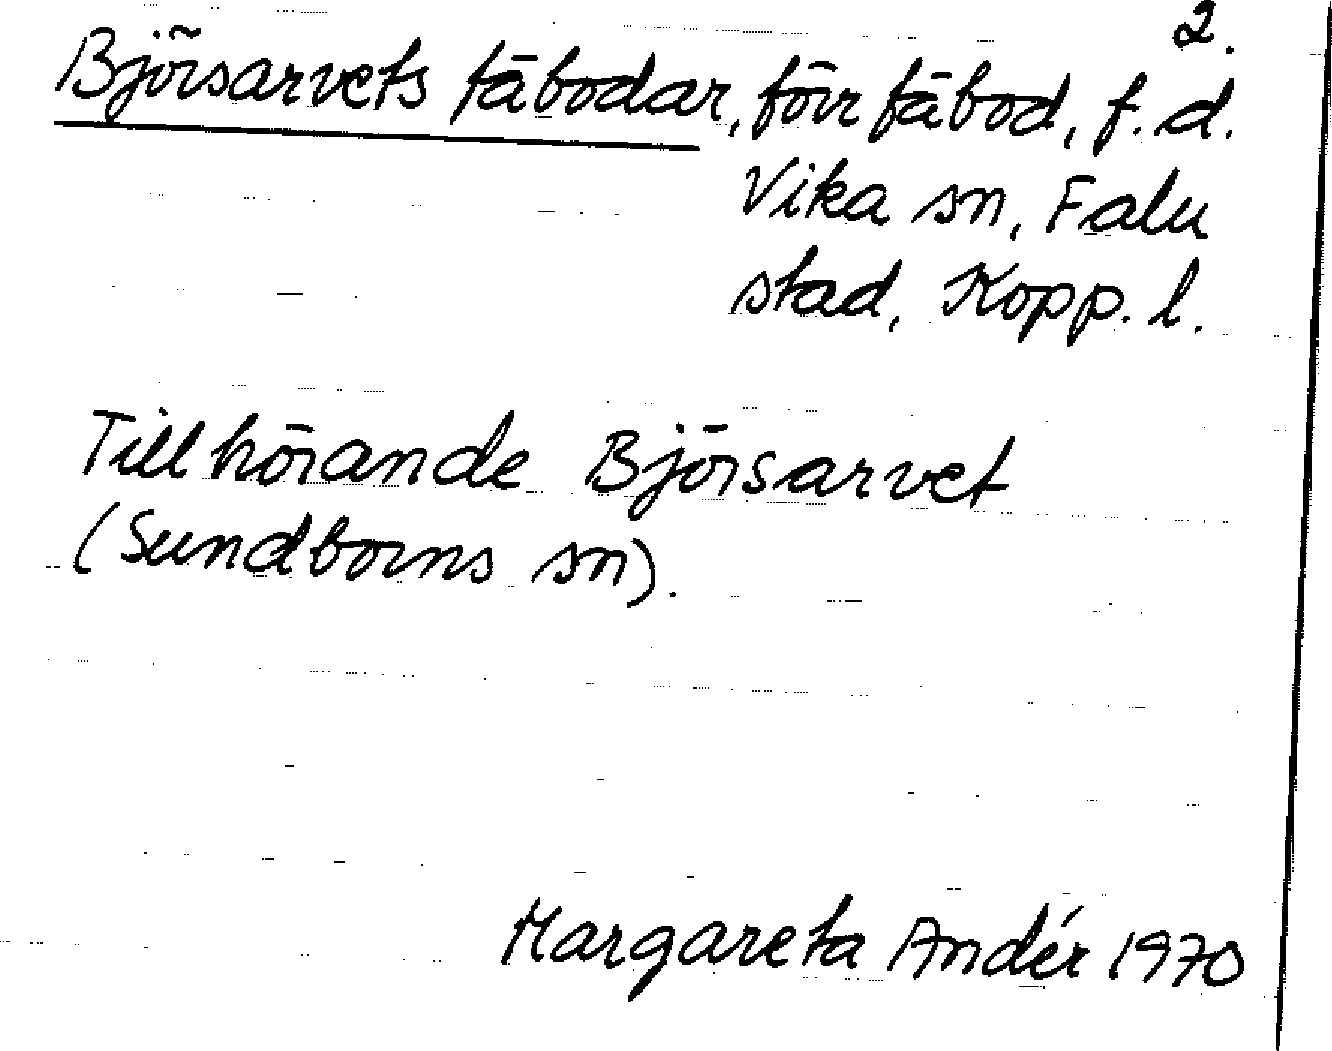 2.
Björsarvets fäbodar, förr fäbod, f.d.
Vika sn, Falu
stad, Kopp. l.
Tillhörande Björsarvet
(Sundborns sn).
Margareta Andér 1970